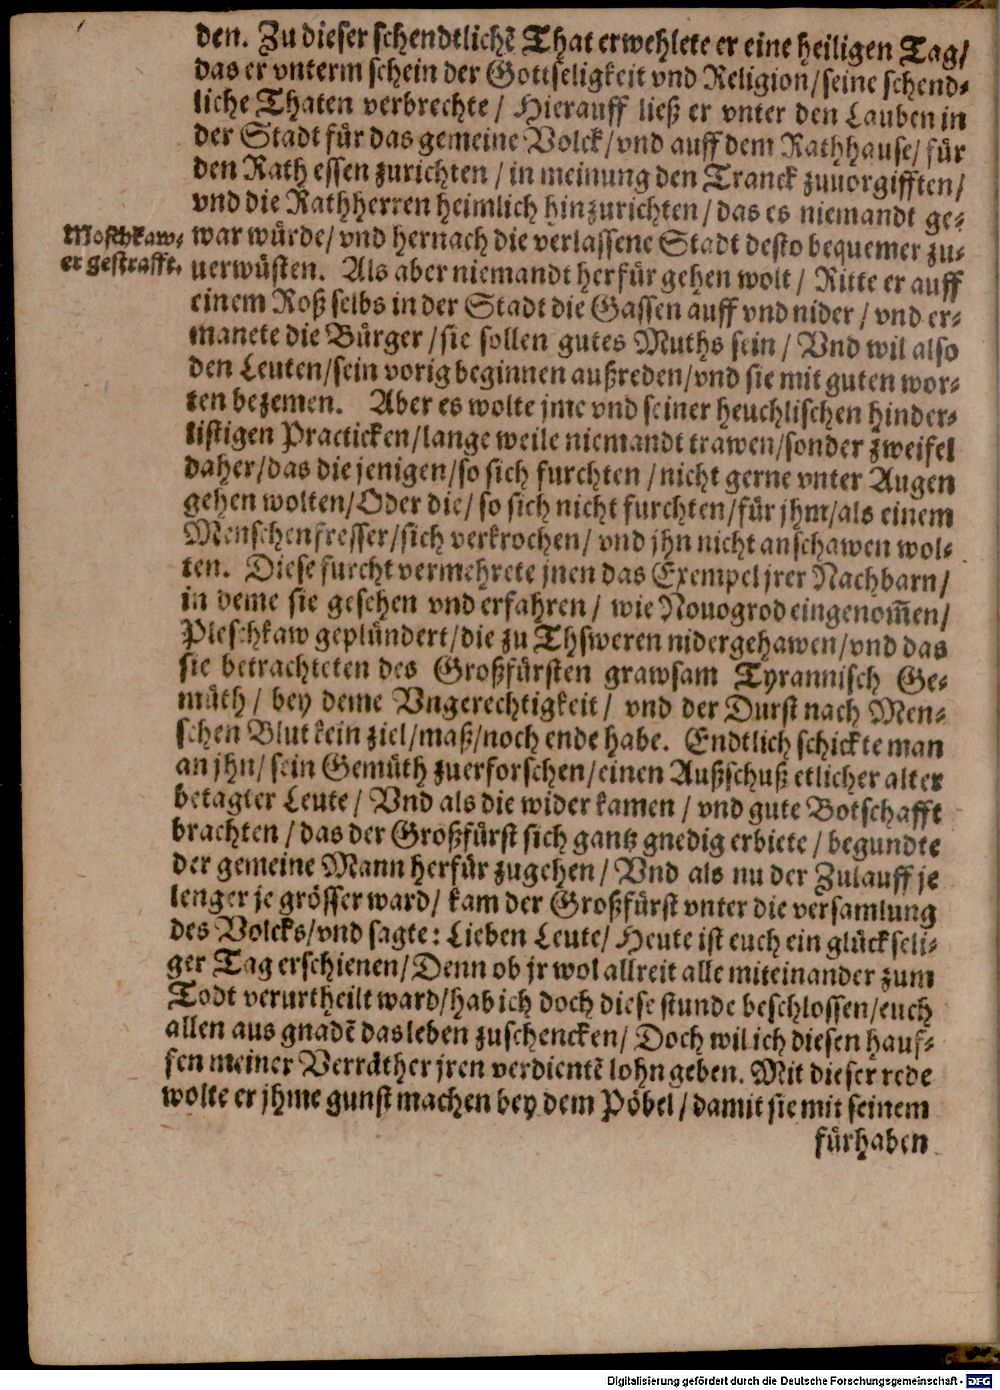 den. Zu dieser schendtlichē That erwehlete er eine heiligen Tag/
das er vnterm schein der Gottseligkeit vnd Religion/seine schend-
liche Thaten verbrechte/ Hierauff ließ er vnter den Lauben in
der Stadt für das gemeine Volck/vnd auff dem Rathhause/ für
den Rath essen zurichten/in meinung den Tranck zuuorgifften/
vnd die Rathherren heimlich hinzurichten/das es niemandt ge-
Moschkaw-
er gestrafft.
war würde/vnd hernach die verlassene Stadt desto bequemer zu-
uerwüsten. Als aber niemandt herfür gehen wolt/ Ritte er auff
einem Roß selbs in der Stadt die Gassen auff vnd nider/vnd er-
manete die Bürger/sie sollen gutes Muths sein/ Vnd wil also
den Leuten/sein vorig beginnen außreden/vnd sie mit guten wor-
ten bezemen. Aber es wolte jme vnd seiner heuchlischen hinder-
listigen Practicken/lange weile niemandt trawen/sonder zweifel
daher/das die jenigen/so sich furchten/nicht gerne vnter Augen
gehen wolten/Oder die/so sich nicht furchten/für jhm/als einem
Menschenfresser/sich verkrochen/vnd jhn nicht anschawen wol-
ten. Diese furcht vermehrete jnen das Exempel jrer Nachbarn/
in deme sie gesehen vnd erfahren/ wie Nouogrod eingenom̃en/
Pleschkaw geplündert/die zu Thsweren nidergehawen/vnd das
sie betrachteten des Großfürsten grawsam Tyrannisch Ge-
müth/ bey deme Vngerechtigkeit/ vnd der Durst nach Men-
schen Blut kein ziel/maß/noch ende habe. Endtlich schickte man
an jhn/sein Gemüth zuerforschen/einen Außschuß etlicher alter
betagter Leute/ Vnd als die wider kamen/vnd gute Botschafft
brachten/das der Großfürst sich gantz gnedig erbiete/begundte
der gemeine Mann herfür zugehen/ Vnd als nu der Zulauff je
lenger je grösser ward/ kam der Großfürst vnter die versamlung
des Volcks/vnd sagte: Lieben Leute/ Heute ist euch ein glückseli-
ger Tag erschienen/Denn ob jr wol allreit alle miteinander zum
Todt verurtheilt ward/hab ich doch diese stunde beschlossen/euch
allen aus gnadē das leben zuschencken/ Doch wil ich diesen hauf-
fen meiner Verräther jren verdientē lohn geben. Mit dieser rede
wolte er jhme gunst machen bey dem Pöbel/damit sie mit seinem
fürhaben
Digitalisierung gefördert durch die Deutsche Forschungsgemeinschaft - DFG